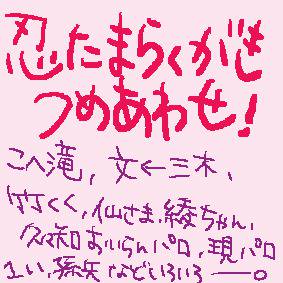 忍たまらくがき
つめあわせ!
こへ滝，文←三木，
竹くく，仙さま，綾ちゃん，
久々知おいらんパロ，現パロ
孫兵などいろいろ——。